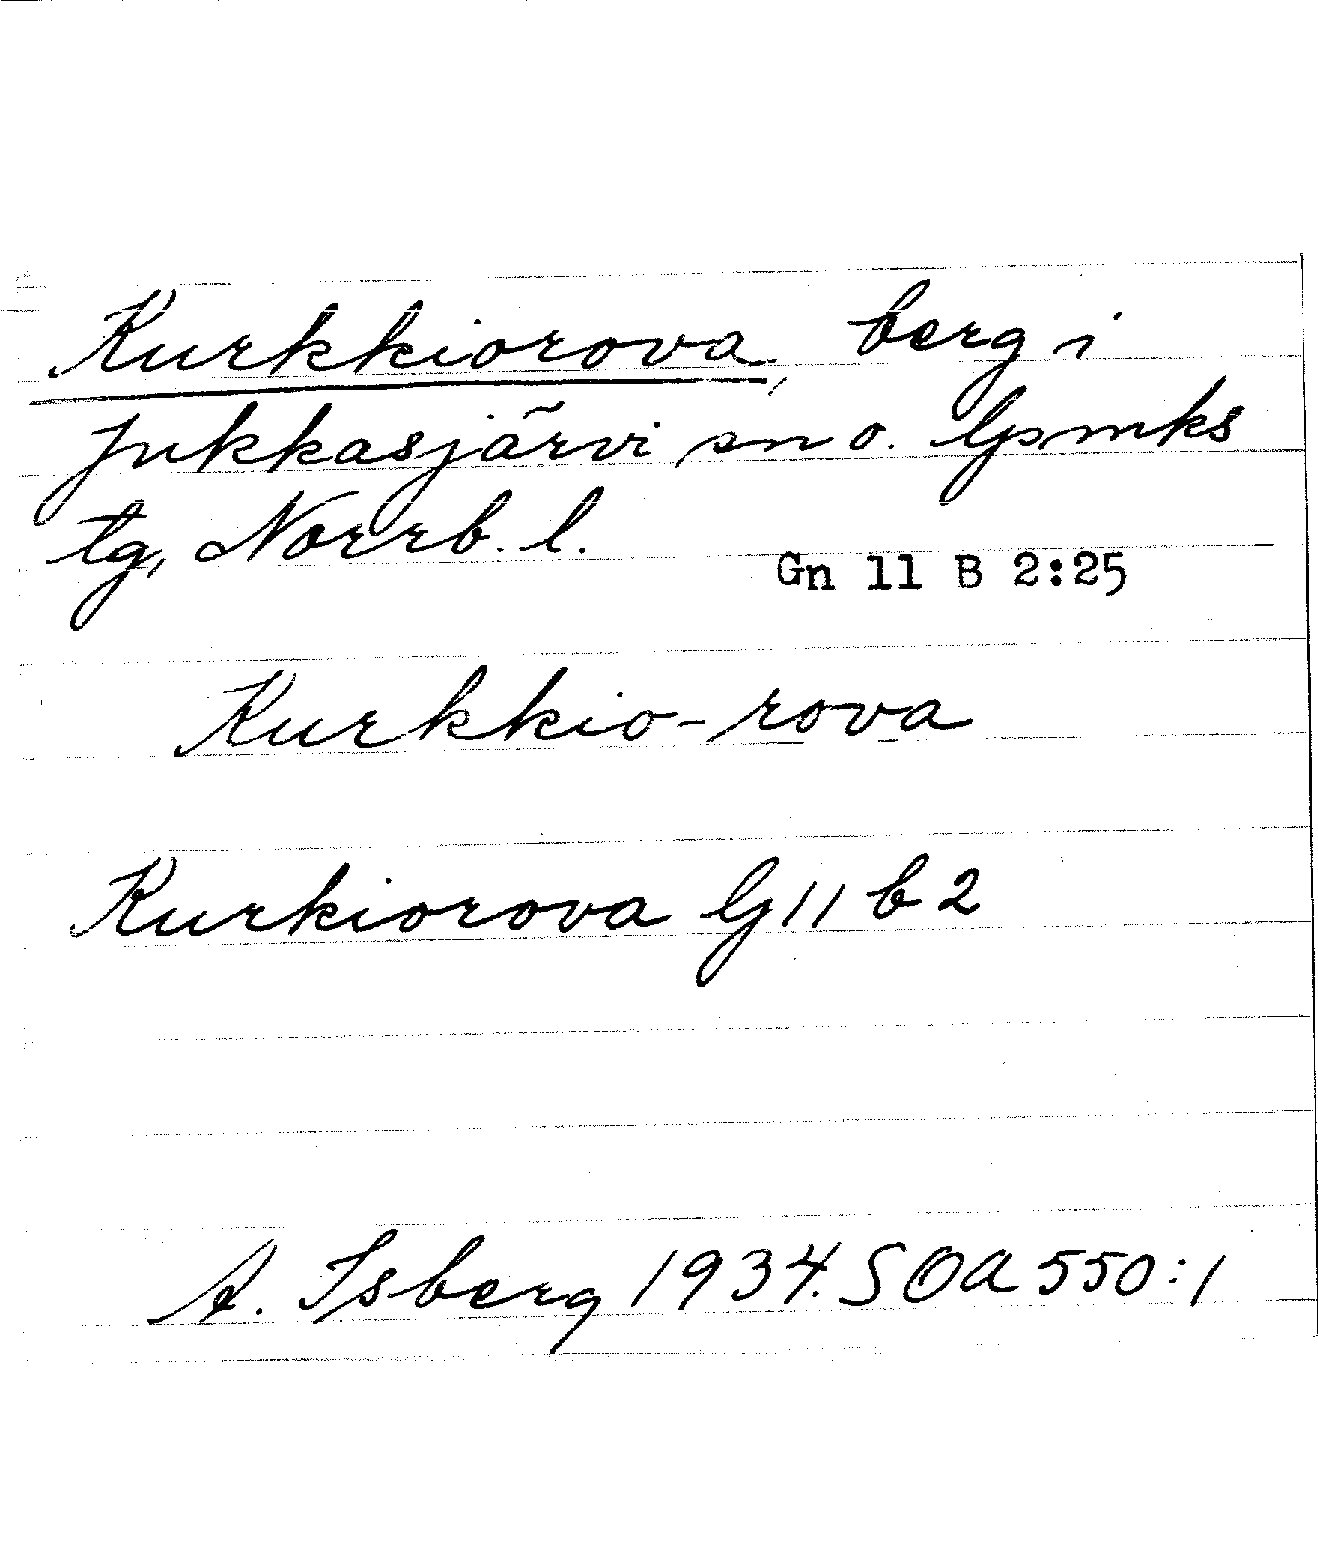 Kurkkiorova, berg i
Jukkasjärvi sn o. Gsmks
tg, Norrb. l.
Gn 11 B 2:25
Kurkkio-rova
Kurkiorova G 11 b 2
A. Isberg 1934. SOA 550:1